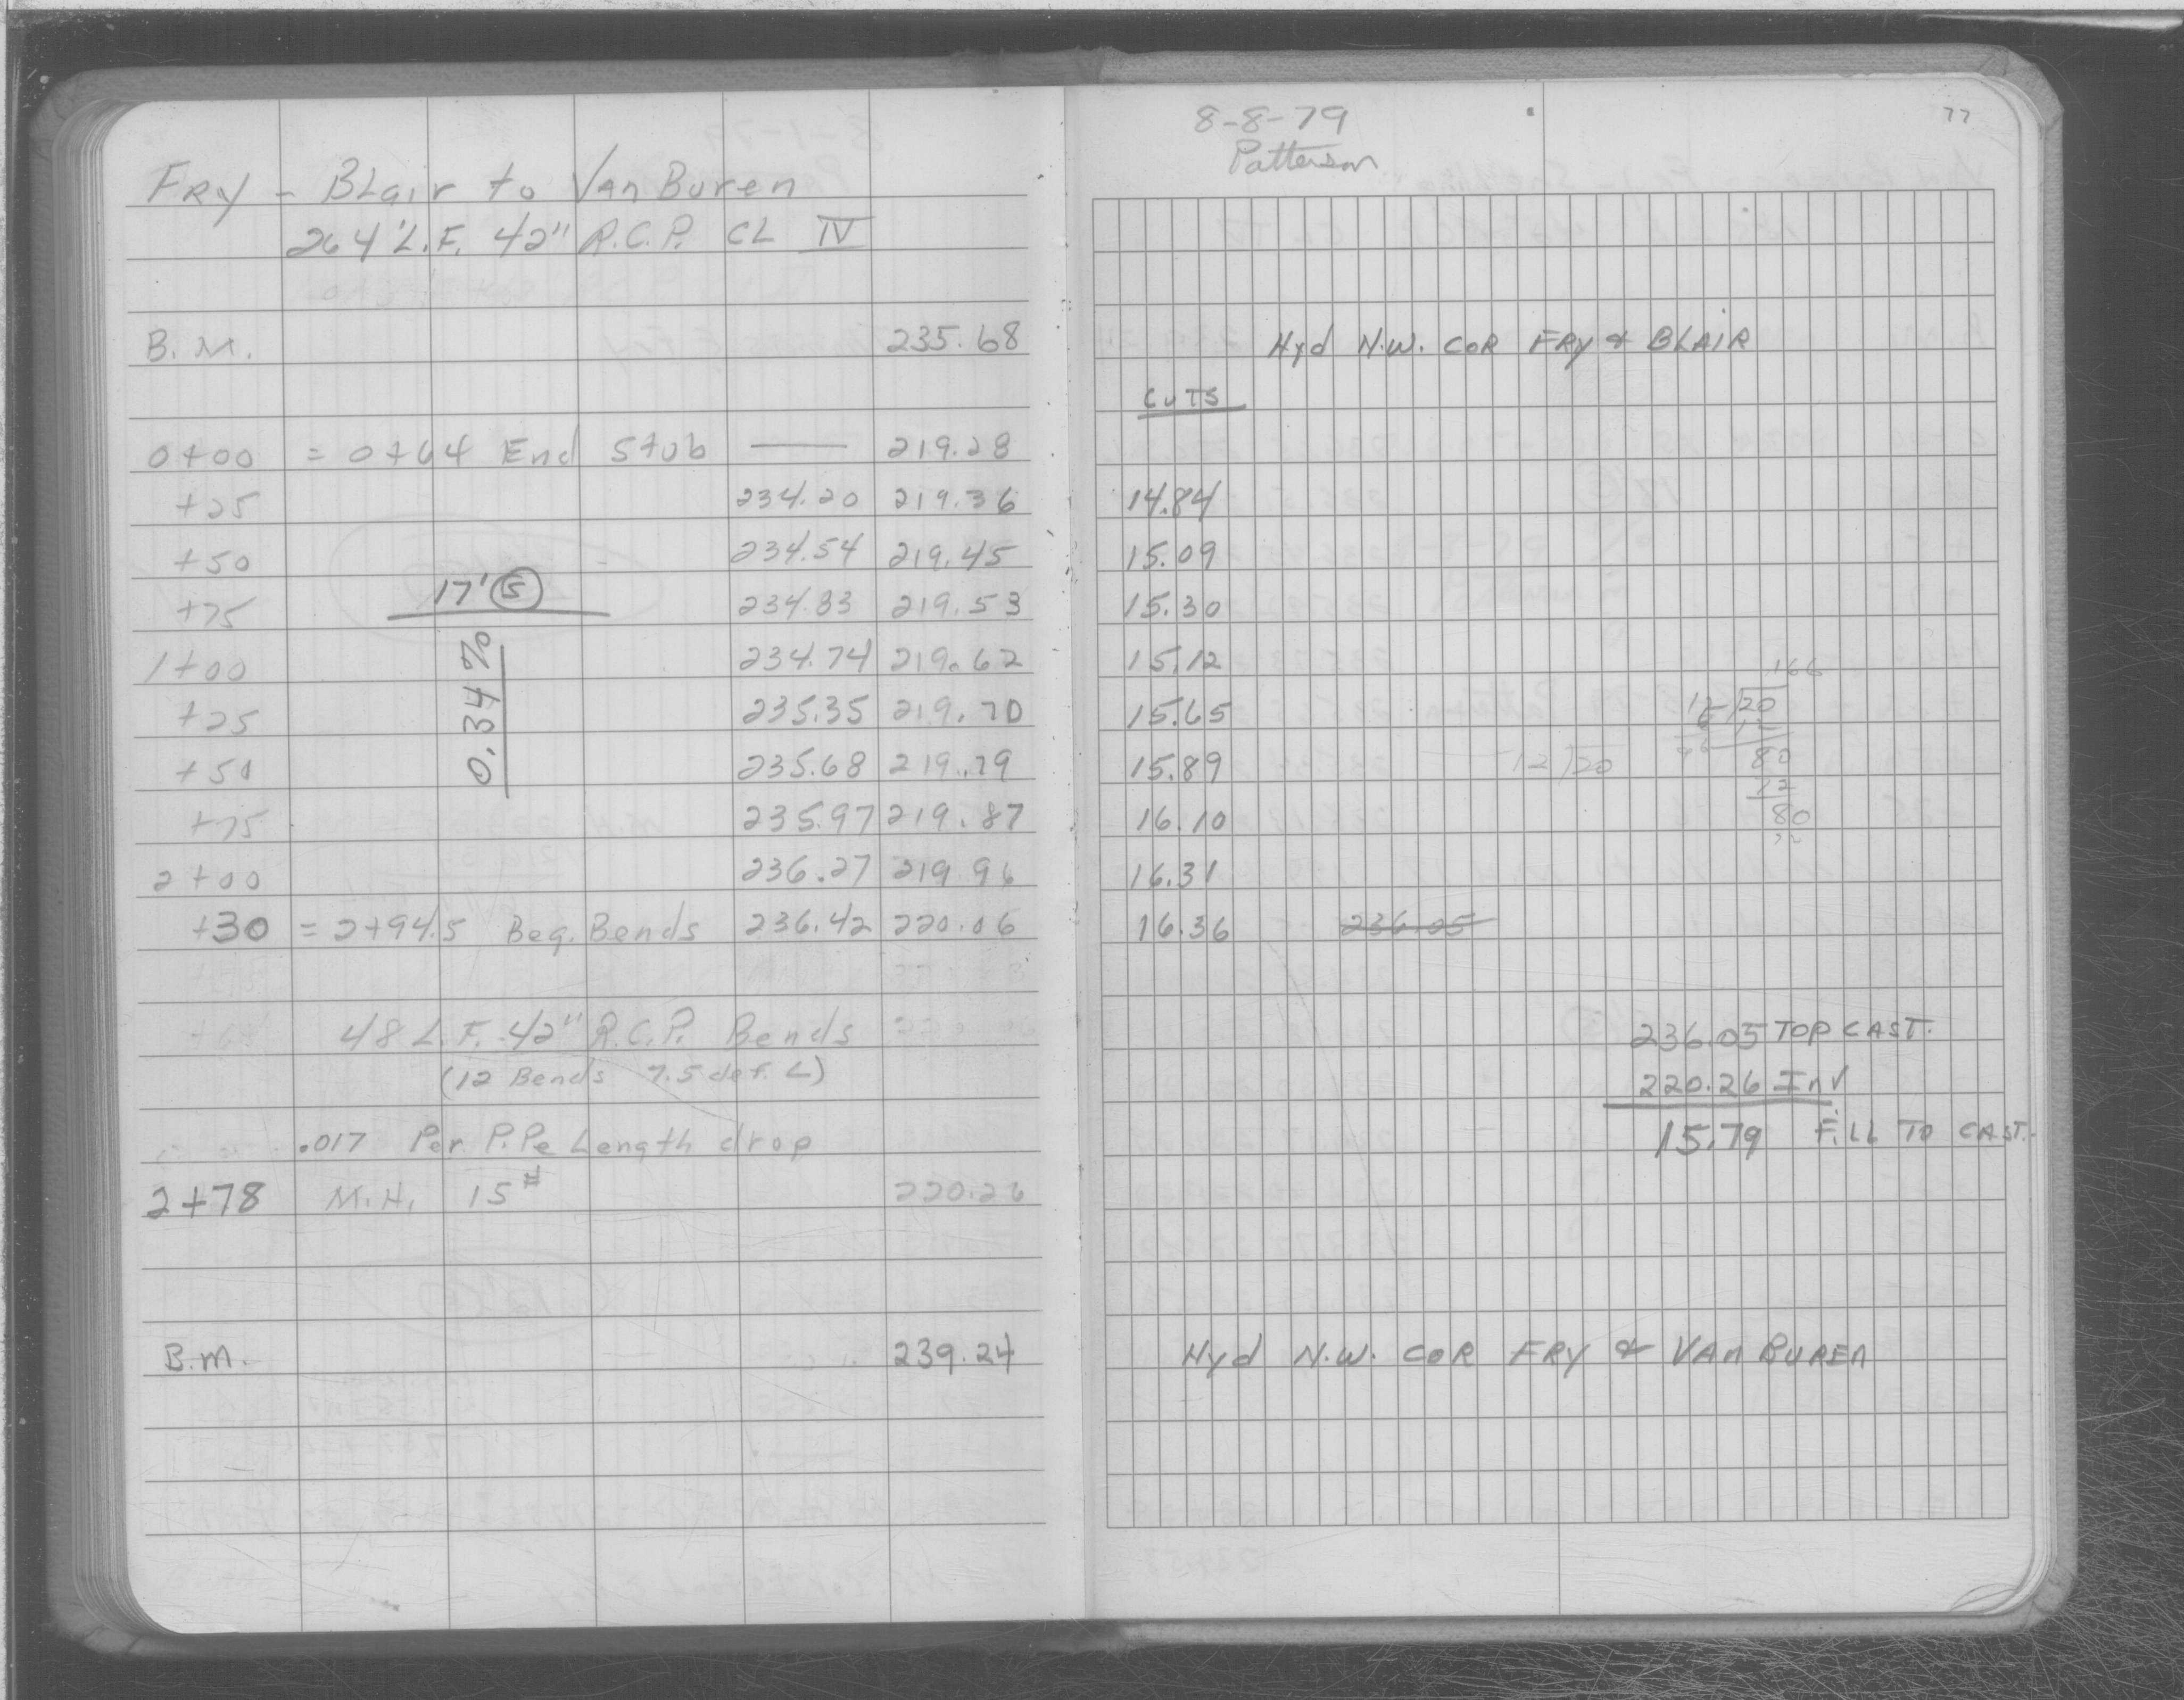 FRY - BLair to Van Buren
264' L.F. 42" R.C.P. CL IV
B.M. 235.68
0+00 = 0+64 End Stub — 219.28
+25 234.20 219.36
+50 234.54 219.45
17' Ⓢ
+75 234.83 219.53
1+00 234.74 219.62
0.34%
+25 235.35 219.70
+50 235.68 219.79
+75 235.97 219.87
2+00 236.27 219.96
+30 = 2+94.5 Beg. Bends 236.42 220.06
48 L.F. 42" R.C.P. Bends
(12 Bends 7.5 def. ∠)
.017 Per PiPe Length drop
2+78 M.H. 15# 220.26
B.M. 239.24
8-8-79
Patterson
77
Hyd N.W. COR FRY & BLAIR
CUTS
14.84
15.09
15.30
15.12
.166
15.65
20
15.89
12 20
80
72
16.10
80
16.31
16.36 236.05
236.05 TOP CAST.
220.26 Inv
15.79 FiLL TO CAST.
Hyd N.W. COR FRY & VAN BUREN